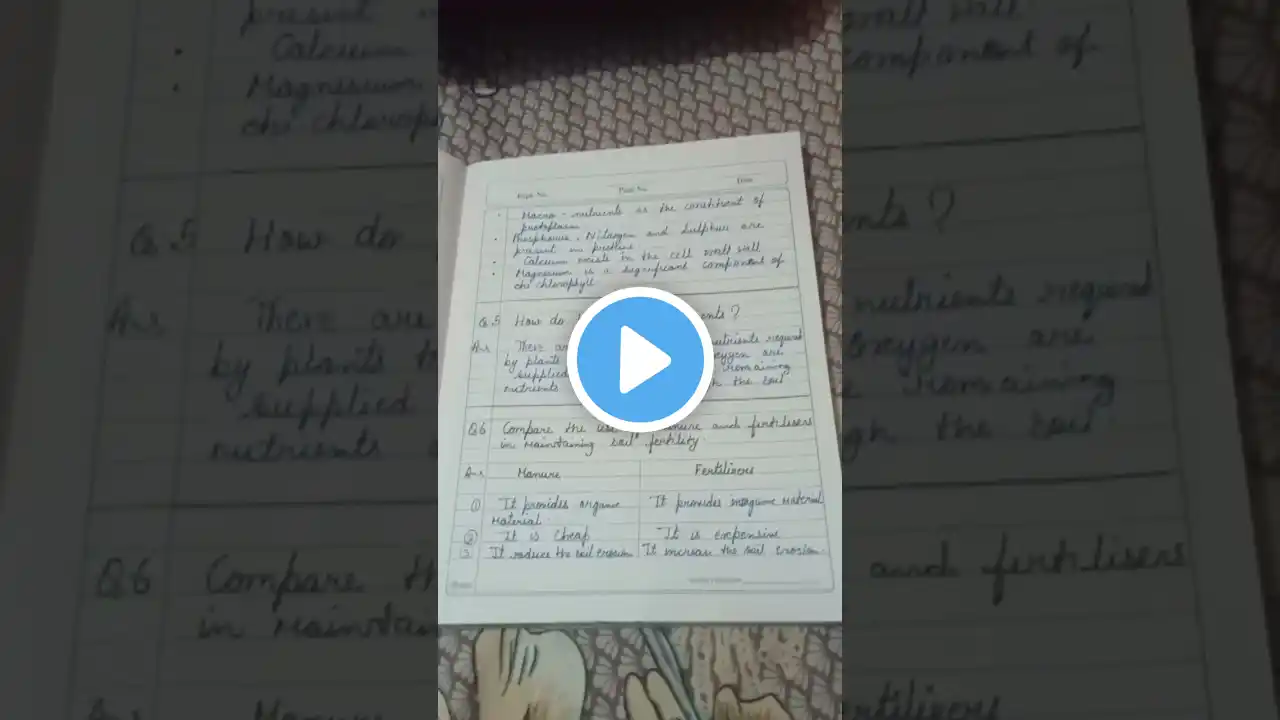 Page No.
Date
• Macro-nutrients as the constituent of
protoplasm
• Phosphorus, Nitrogen and Sulphur are
present in proteins
• Calcium exists in the cell wall
• Magnesium is a significant component of
chi chlorophyll
Q.5 How do ents?
Ans There are nutrients required
by plants oxygen are
supplied remaining
nutrients the soil
Q6 Compare the use manure and fertilisers
in maintaining soil fertility
Ans Manure Fertilizers
① It provides organic It provides inorganic material
material
② It is cheap It is expensive
3. It reduce the soil erosion It increase the soil erosion.